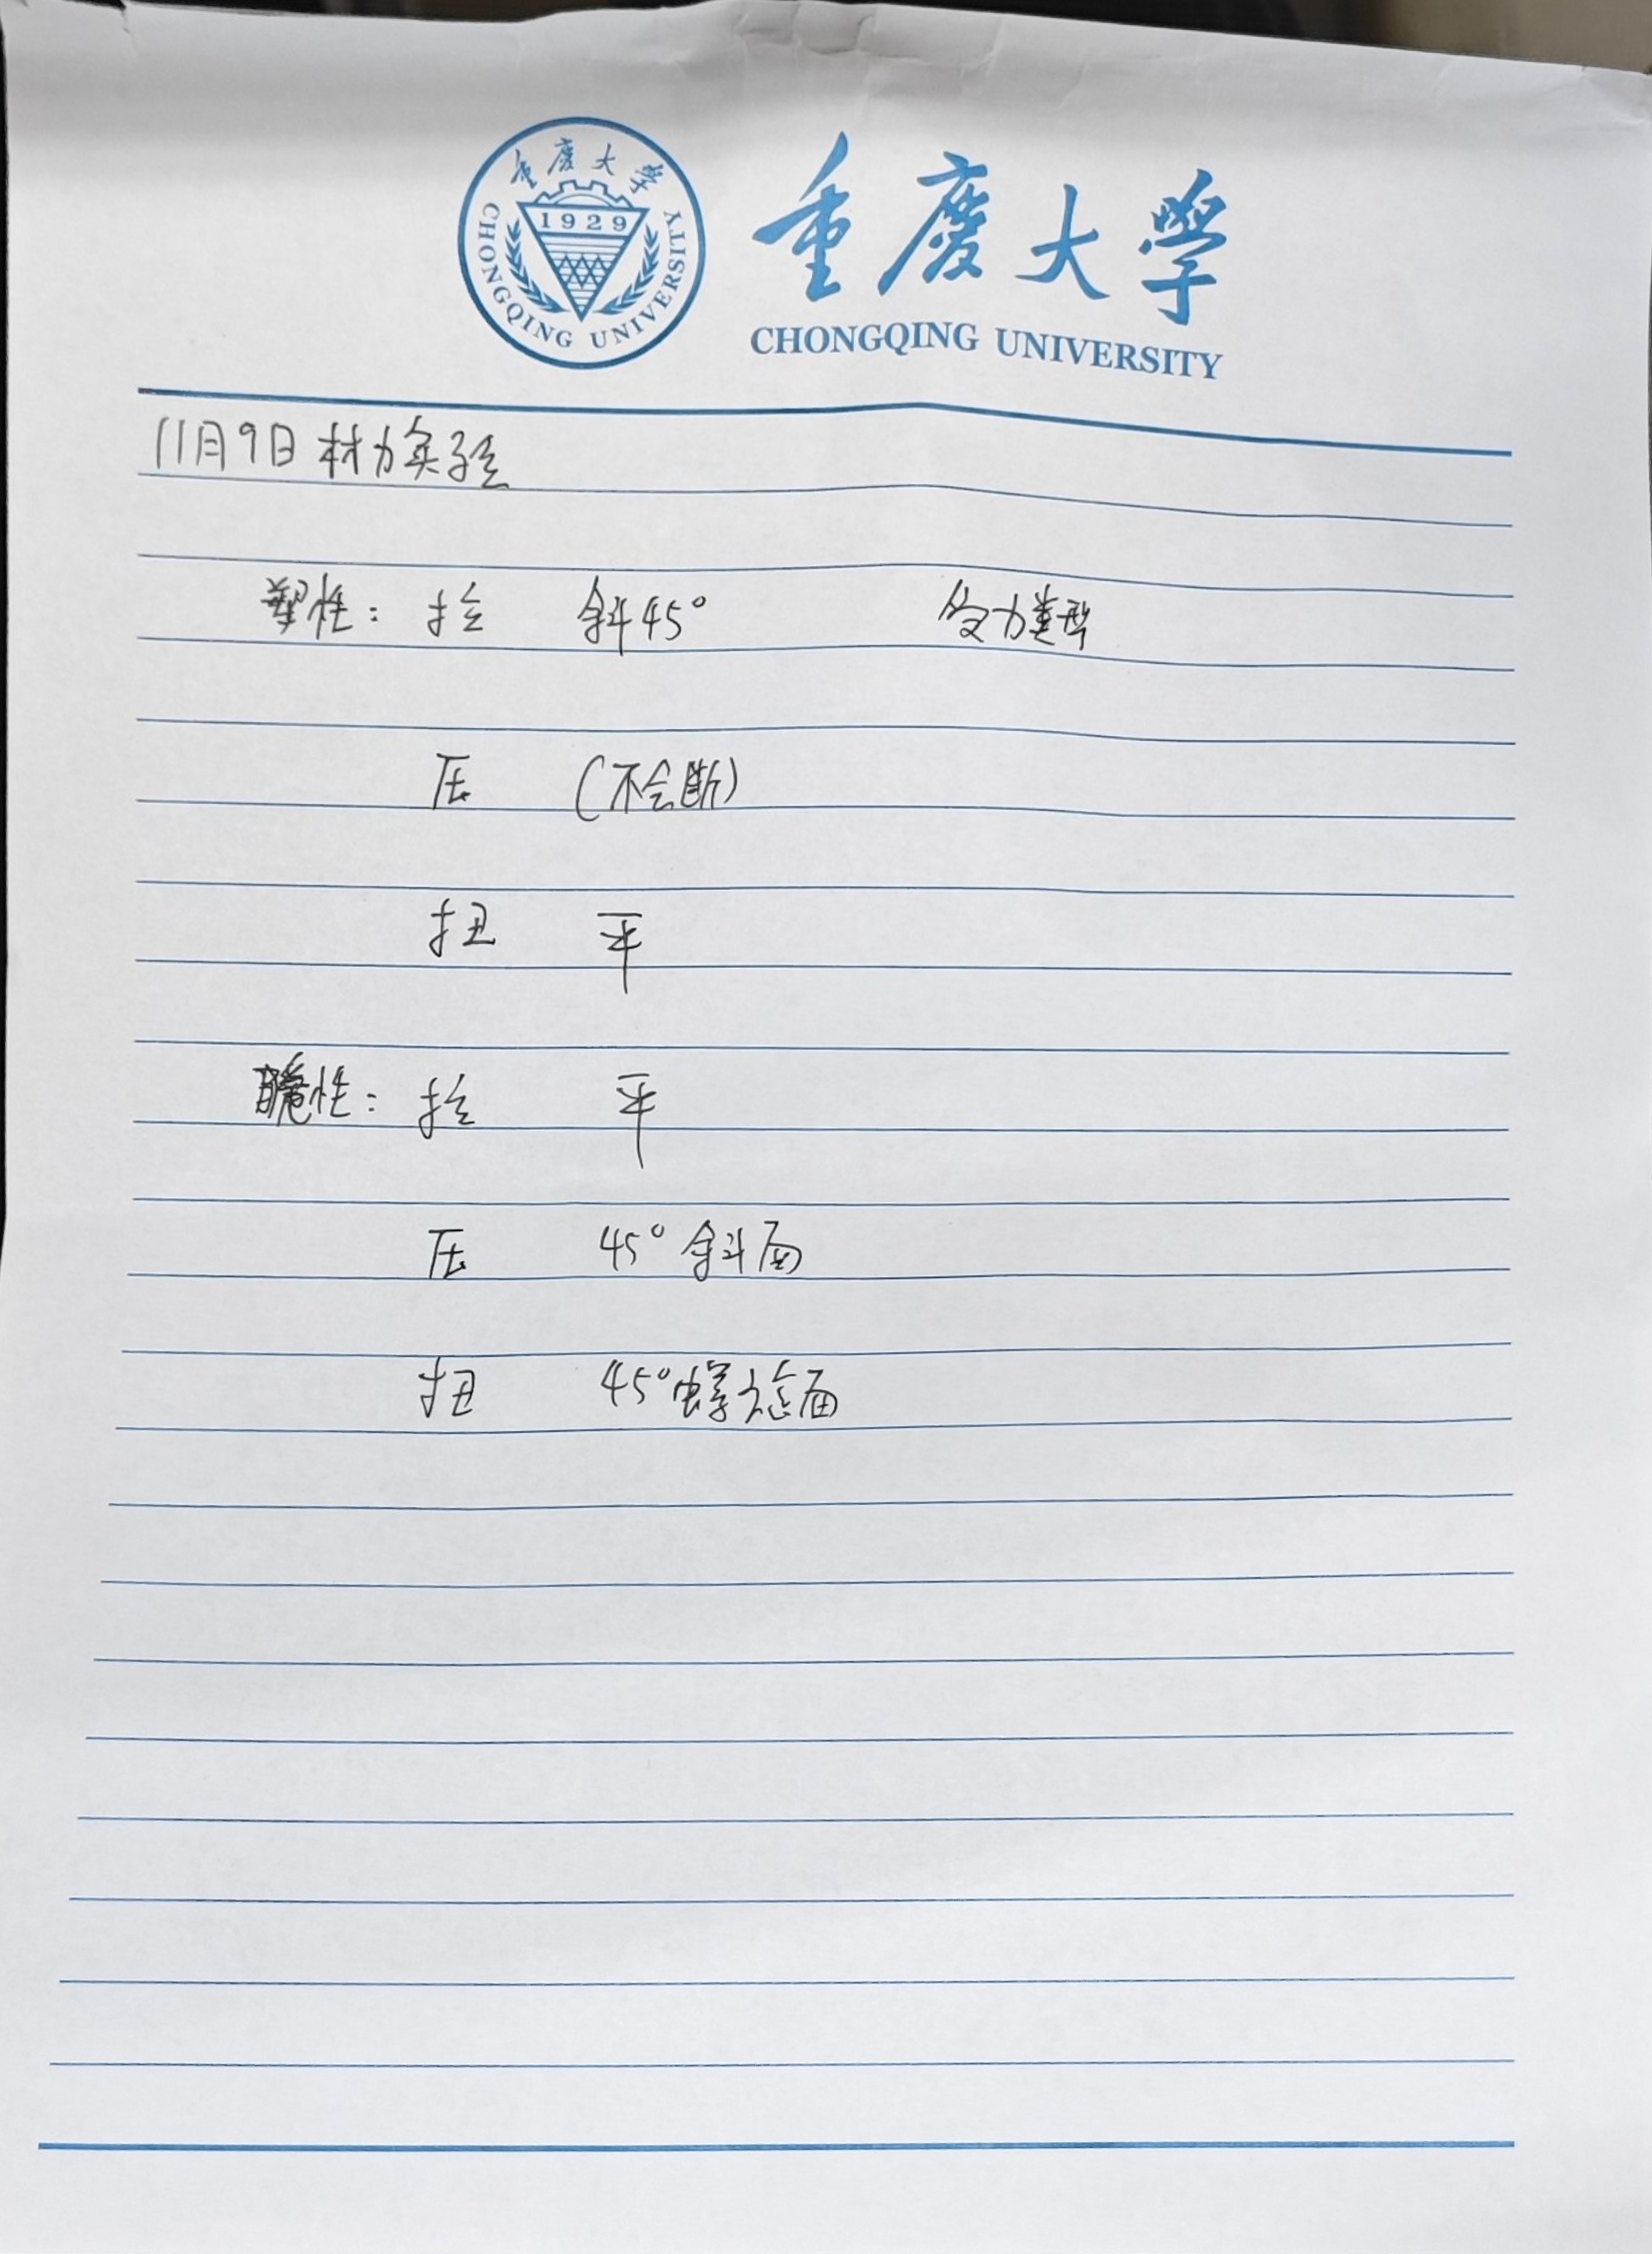 重庆大学
1929
CHONGQING UNIVERSITY
重慶大學
CHONGQING UNIVERSITY
11月9日 材力实验
塑性: 拉 斜45° 受力类型
压 (不会断)
扭 平
脆性: 拉 平
压 45° 斜面
扭 45°螺旋面